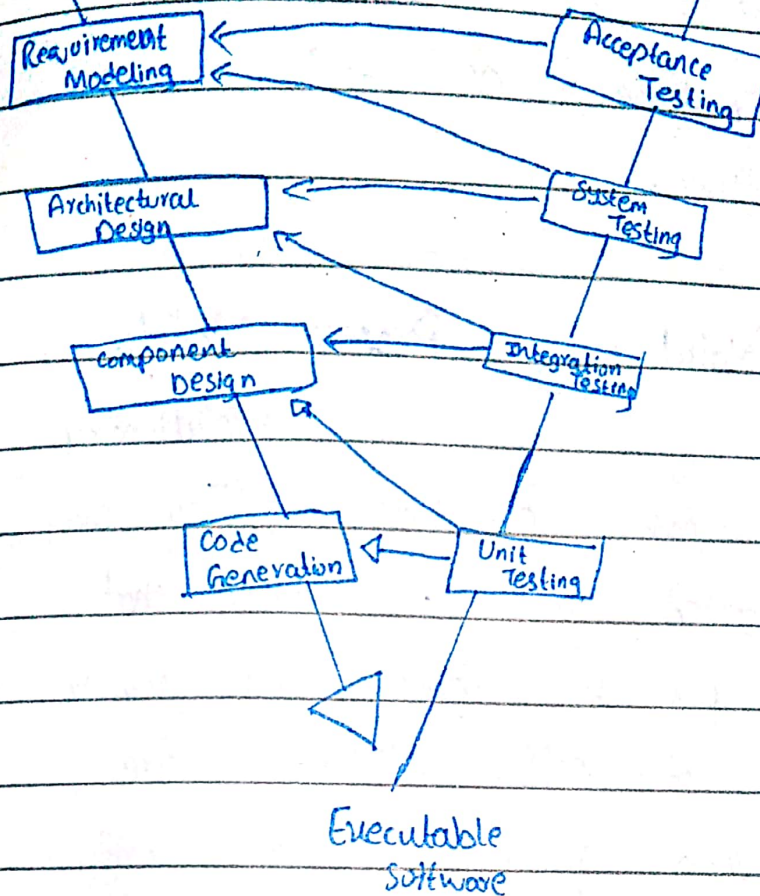 Requirement
Modeling
Acceptance
Testing
Architectural
Design
System
Testing
Component
Design
Integration
Testing
Code
Generation
Unit
Testing
Executable
Software